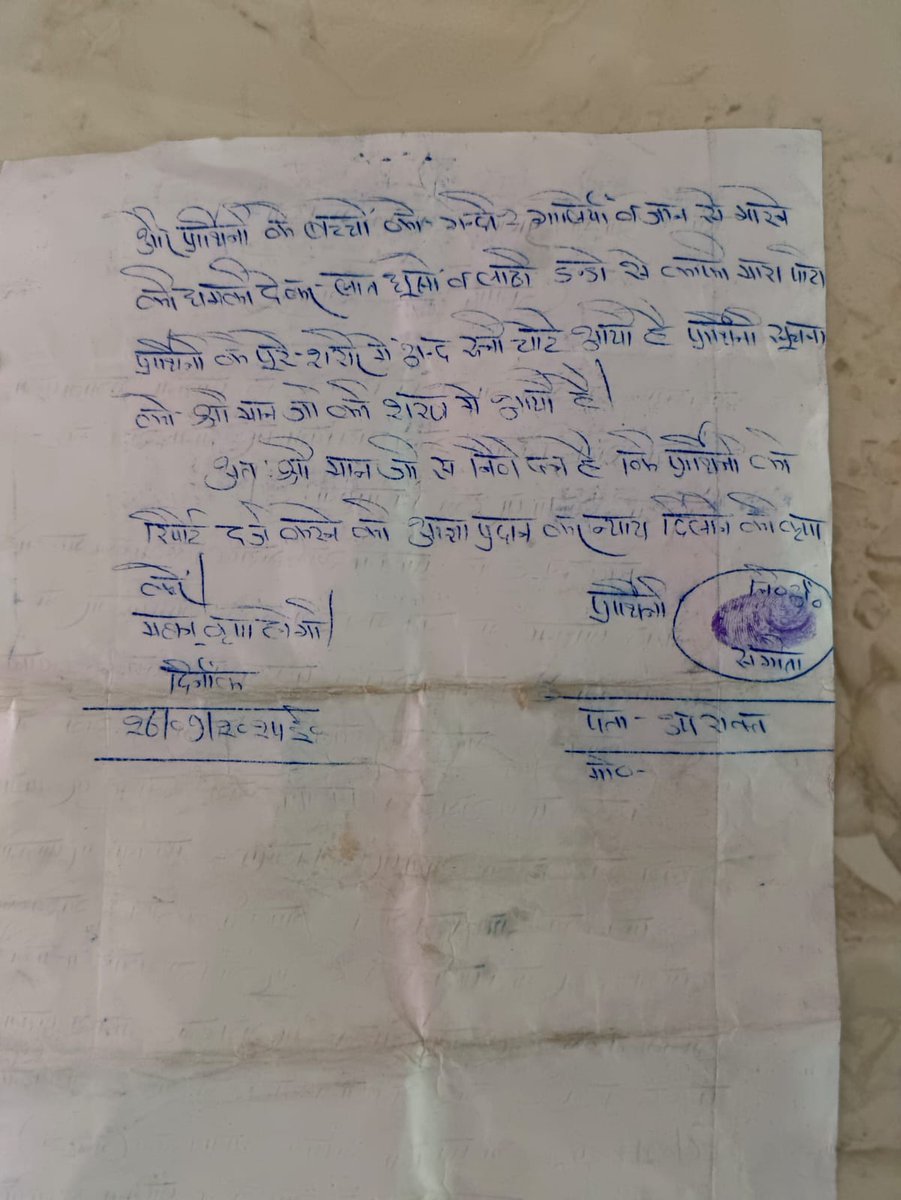 और प्रार्थिनी के बच्चों को गन्दी-२ गालियाँ व जान से मारने
की धमकी देकर लात घूसों व लाठी डन्डो से काफी मारा पीटा
प्रार्थिनी के पूरे शरीर में अन्द रूनी चोटे आयी है प्रार्थिनी सूचना
को श्री मान जी की शरण में आयी है।
अतः श्री मान जी से निवेदन है कि प्रार्थिनी की
रिपोर्ट दर्ज करने की आज्ञा प्रदान कर न्याय दिलाने की कृपा
करें।
महान कृपा होगी।
प्रार्थिनी
नि०अं०
संगीता
दिनाँक
२८/०७/२०२५ई०
पता-
मो०-